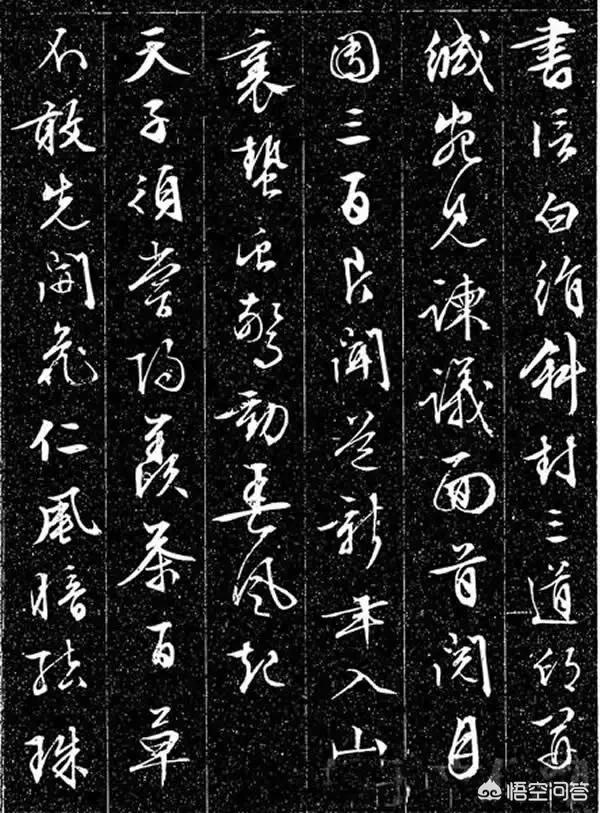 書信白絹斜封三道印開
緘宛見諫議面首閱月
團三百片聞道新年入山
裏蟄虫驚動春風起
天子須嘗陽羨茶百草
不敢先開花仁風暗結珠
悟空问答